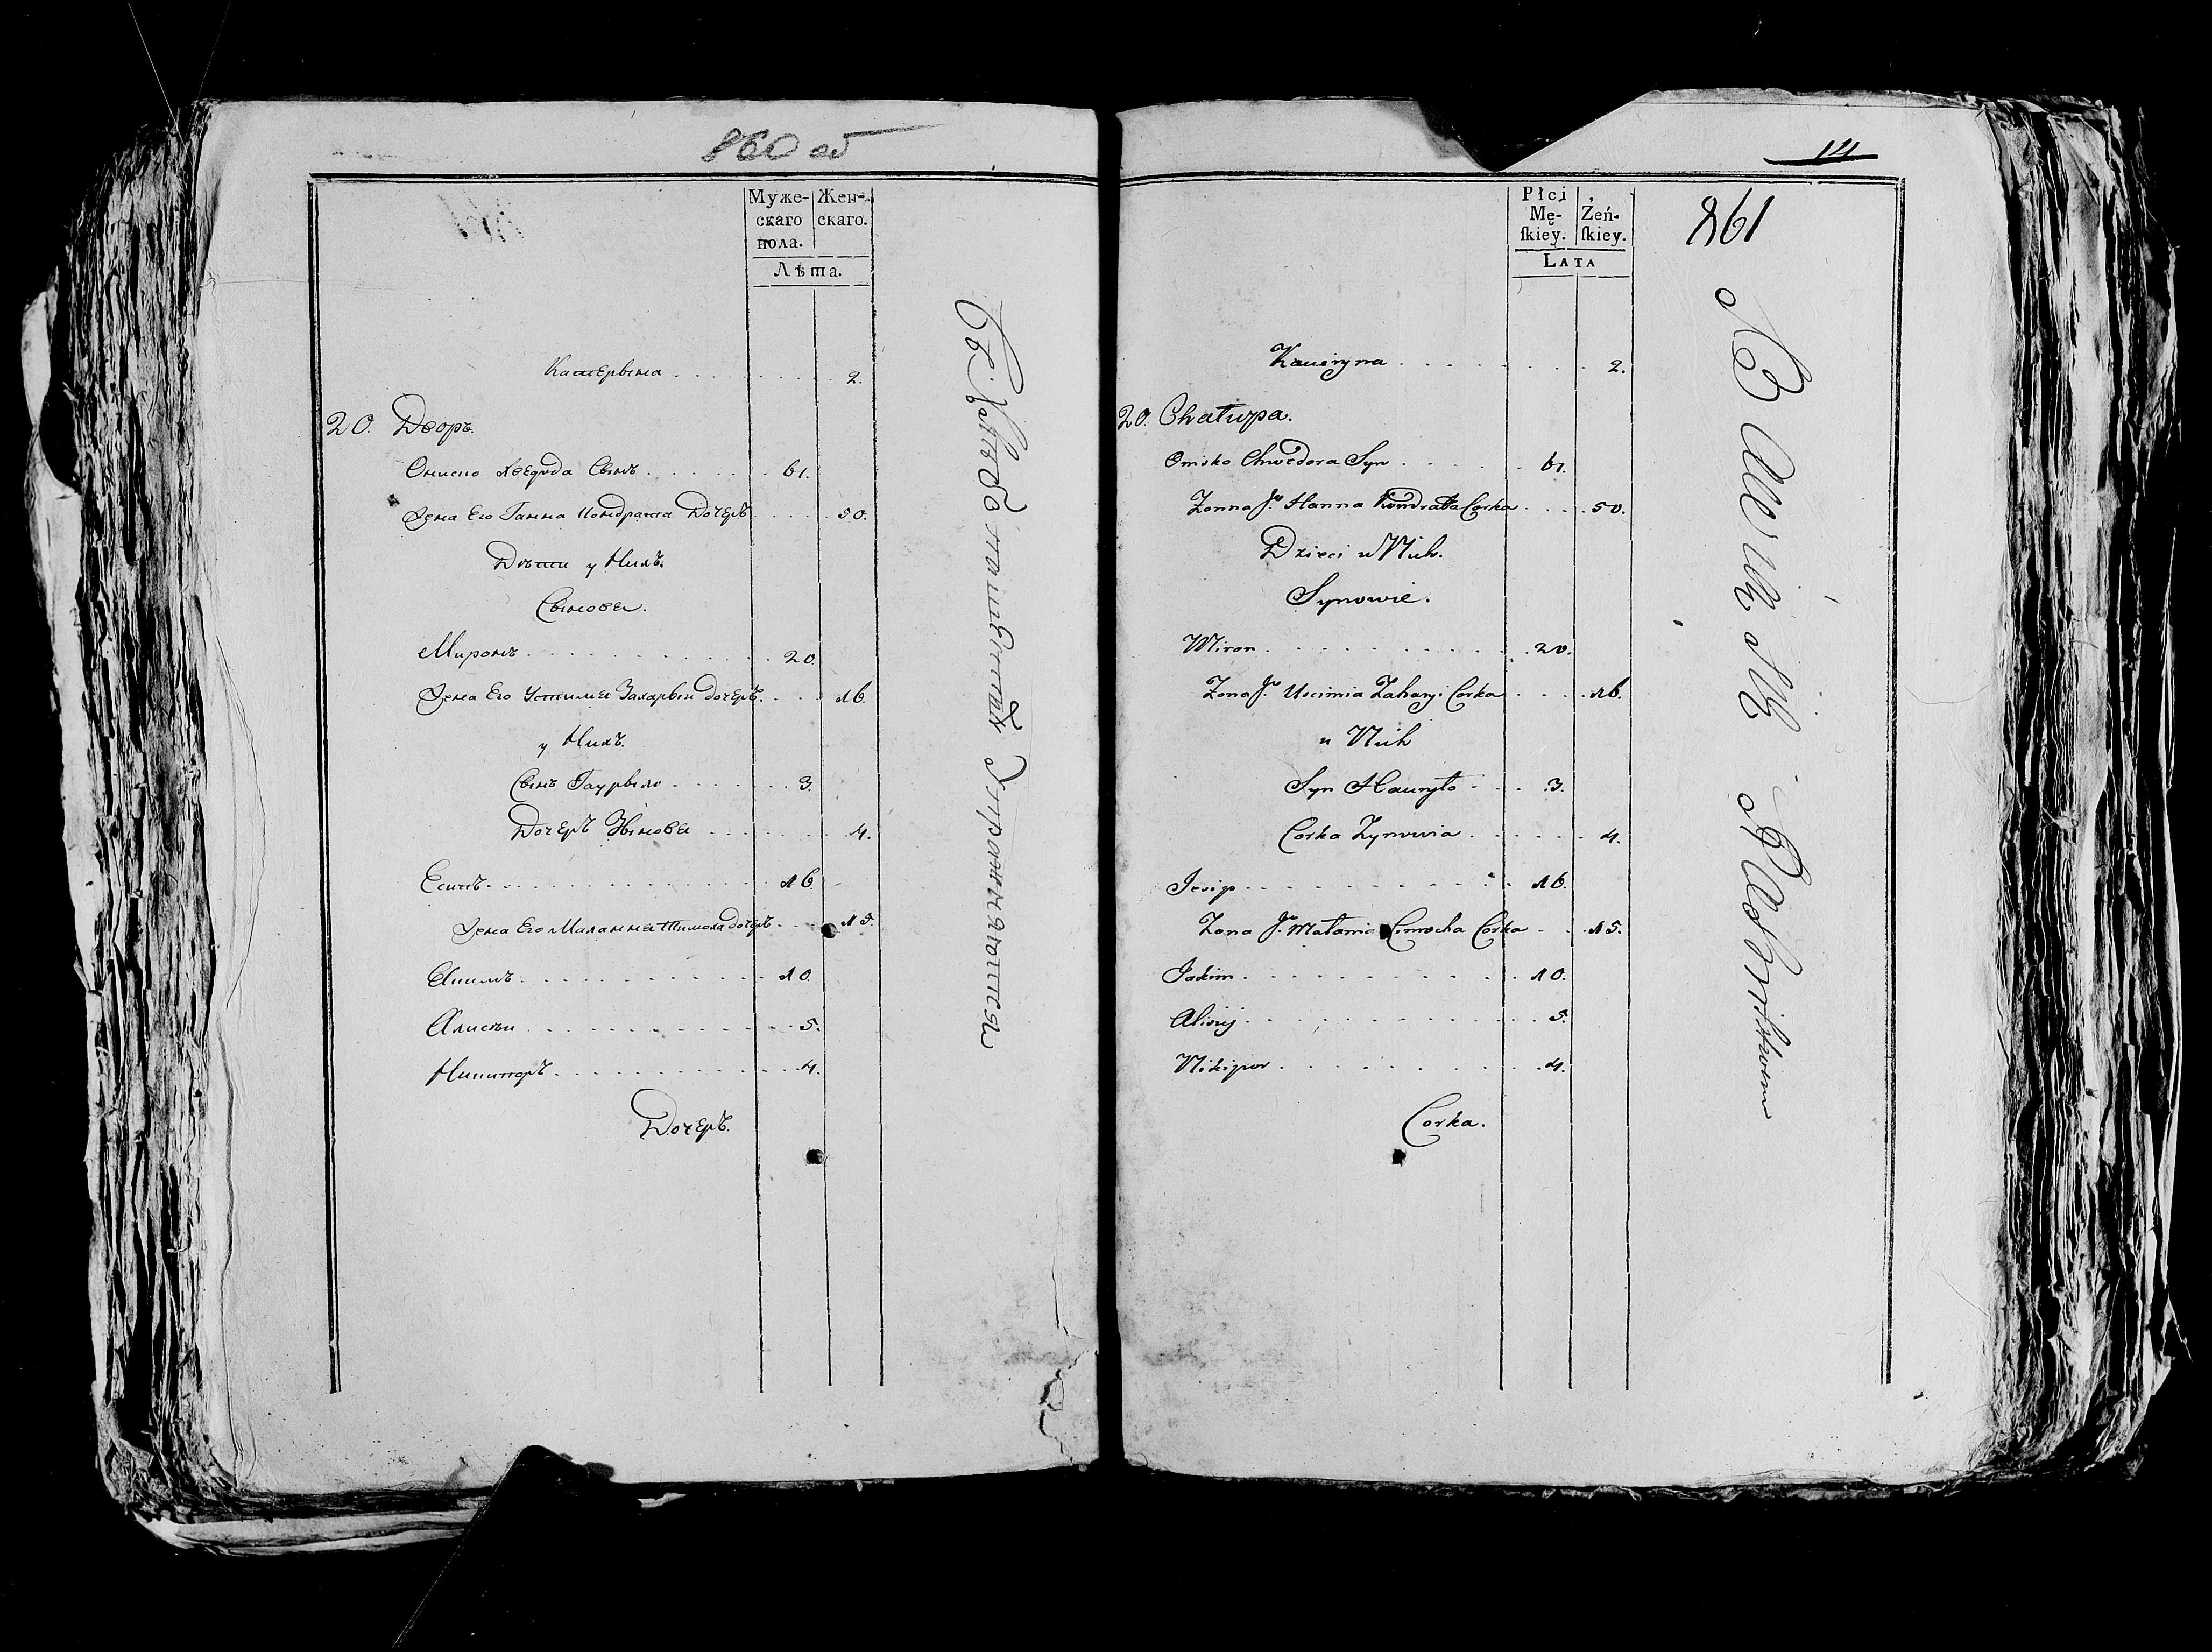 860 об
Муже-
скаго
пола.
Жен-
скаго.
Лѣта.
Катерына . . . 2.
20. Дворъ.
Ониско Хведода Сынъ . . . 61.
Жена Его Ганна Кондрата Дочеръ . . . 50.
Дѣти у Нихъ.
Сыновеи.
Миронъ . . . 20.
Жена Его Устимия Захарыи дочеръ . . . 16.
у Нихъ.
Сынъ Гаурыло . . . 3.
Дочеръ Зынове . . . 4.
Есипъ . . . 16
Жена Его Маланна Тимоха дочеръ . . . 15.
Якимъ . . . 10.
Алисѣи . . . 5.
Никипоръ . . . 4.
Дочеръ.
Хлѣбопашествомъ Упражняются
14
861
Płci
Mę-
ſkiey.
Żeń-
ſkiey.
LATA
Kateryna . . . 2.
20. Chałupa.
Onisko Chwedora Syn . . . 61.
Zonna Jo Hanna Kondrata Corka . . . 50.
Dzieci u Nich.
Synowie.
Miron . . . 20.
Zona Jo Uscimia Zaharyi Corka . . . 16.
u Nich
Syn Hauryło . . . 3.
Corka Zynowia . . . 4.
Jesip . . . 16.
Zona Jo Małania Cimocha Corka . . . 15.
Jakim . . . 10.
Alisiej . . . 5.
Nikipor . . . 4.
Corka.